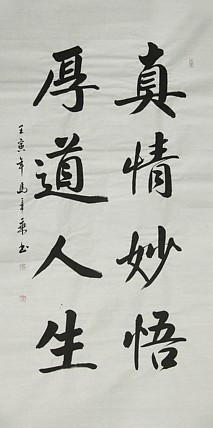 真情妙悟
厚道人生
壬寅年马年乘书